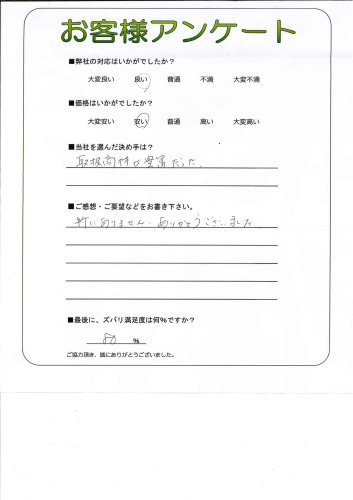 お客様アンケート
■弊社の対応はいかがでしたか？
大変良い 良い 普通 不満 大変不満
■価格はいかがでしたか？
大変安い 安い 普通 高い 大変高い
■当社を選んだ決め手は？
取扱商材が豊富だった。
■ご感想・ご要望などをお書き下さい。
特にありません。ありがとうございました
■最後に、ズバリ満足度は何％ですか？
80 ％
ご協力頂き、誠にありがとうございました。